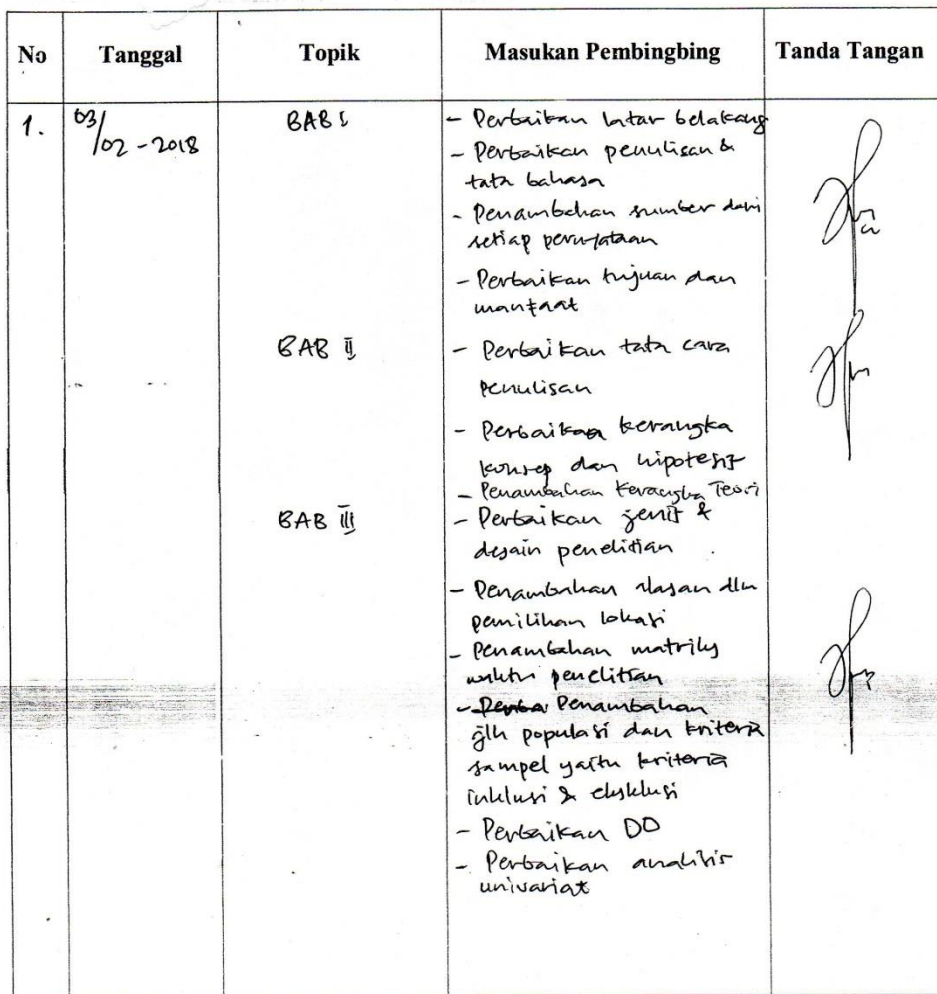 No Tanggal Topik Masukan Pembingbing Tanda Tangan
1. 03/02 - 2018 BAB I - Perbaikan latar belakang
- Perbaikan penulisan &
tata bahasa
- Penambahan sumber dari
setiap pernyataan
- Perbaikan tujuan dan
manfaat
BAB II - Perbaikan tata cara
penulisan
- Perbaikan kerangka
konsep dan hipotesis
- Penambahan kerangka Teori
BAB III - Perbaikan jenis &
desain penelitian
- Penambahan alasan dlm
pemilihan lokasi
- Penambahan matriks
waktu penelitian
- Penambahan
jlh populasi dan kriteria
sampel yaitu kriteria
inklusi & eksklusi
- Perbaikan DO
- Perbaikan analisis
univariat